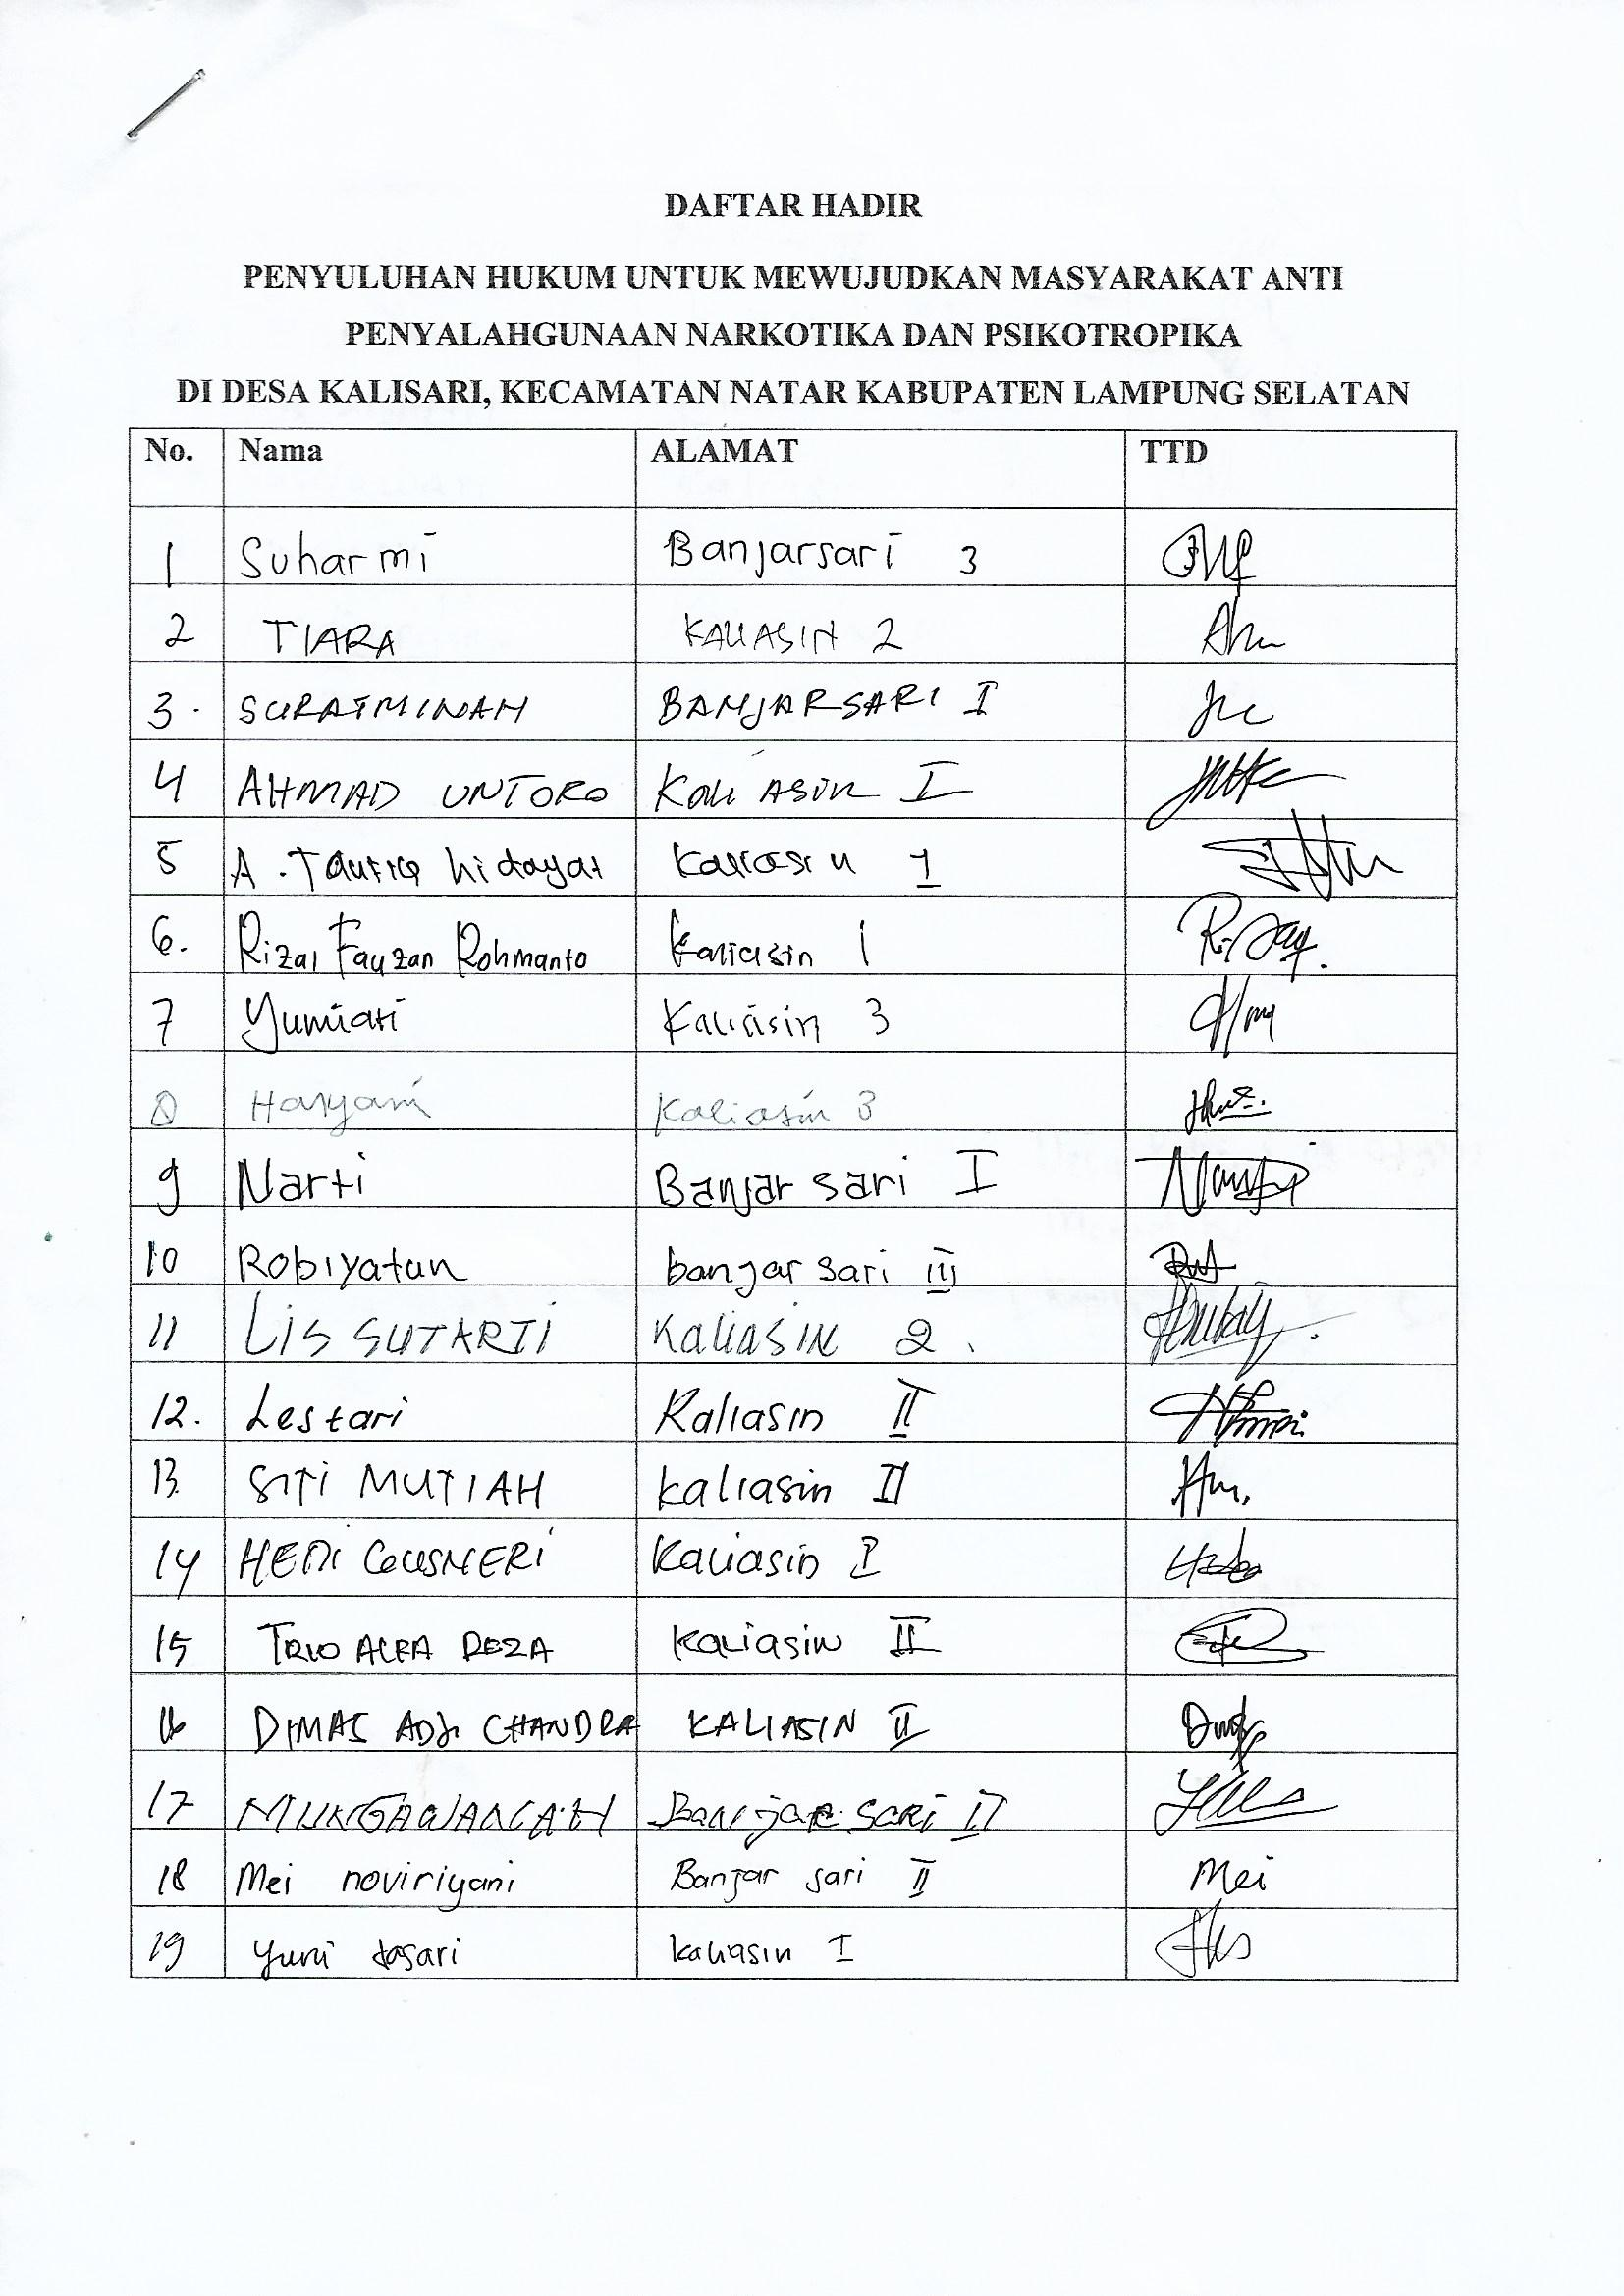 DAFTAR HADIR
PENYULUHAN HUKUM UNTUK MEWUJUDKAN MASYARAKAT ANTI
PENYALAHGUNAAN NARKOTIKA DAN PSIKOTROPIKA
DI DESA KALISARI, KECAMATAN NATAR KABUPATEN LAMPUNG SELATAN
No. Nama ALAMAT TTD
1 Suharmi Banjarsari 3
2 TIARA KALIASIN 2
3. SURATMINAH BANJARSARI I
4 AHMAD UNTORO Kali ASIN I
5 A. Taufiq hidayat Kaliasin 1
6. Rizal Fauzan Rohmanto Kaliasin 1
7 Yumiati Kaliasin 3
8 Haryani Kaliasin 3
9 Narti Banjar sari I
10 Robiyatun banjar sari III
11 LIS SUTARTI KALIASIN 2.
12. Lestari Kaliasin II
13. SITI MUTIAH kaliasin II
14 HEDI GUSNERI Kaliasin I
15 TRIO ALFA REZA Kaliasin II
16 DIMAS ADJI CHANDRA KALIASIN II
17 Banjar sari II
18 Mei noviriyani Banjar sari II Mei
19 Yuni Kaliasin I